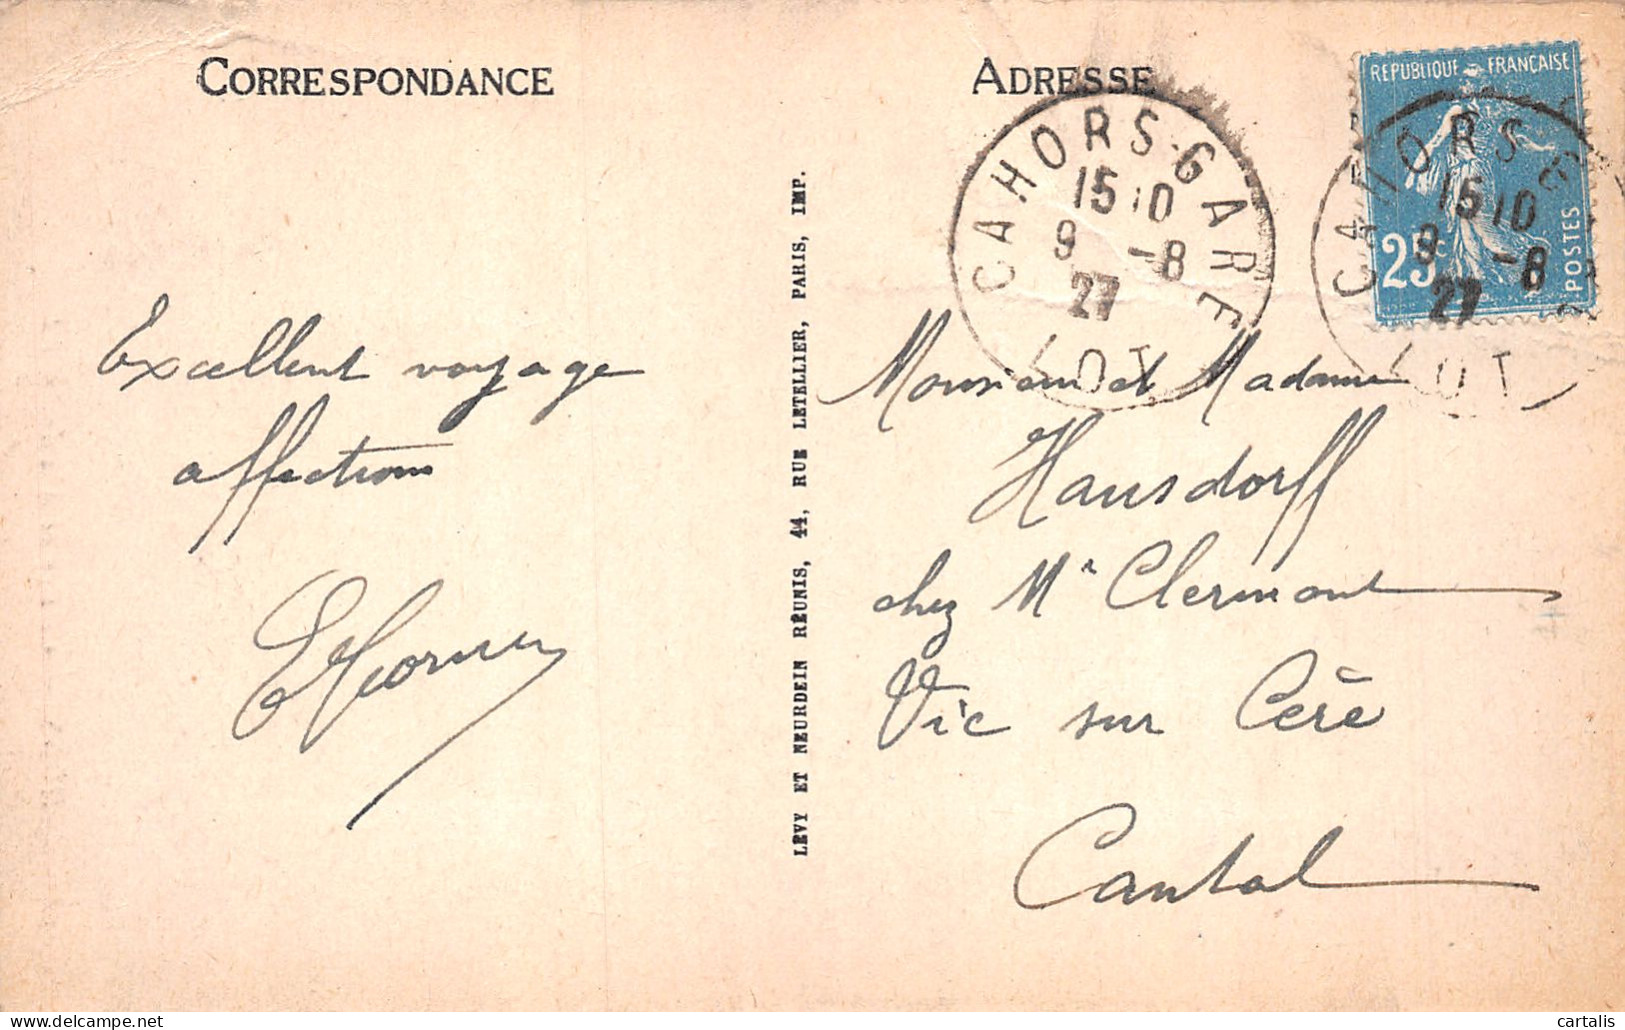 CORRESPONDANCE
Excellent voyage
affection
LÉVY ET NEURDEIN RÉUNIS, 44, RUE LETELLIER, PARIS, IMP.
ADRESSE
CAHORS-GARE
15 10
9 -8
27
LOT
REPUBLIQUE FRANÇAISE
25c
POSTES
CAHORS G
15 10
9 -8
27
LOT
Monsieur et Madame
Hausdorff
chez Mr Clermont
Vic sur Cère
Cantal
cartalis